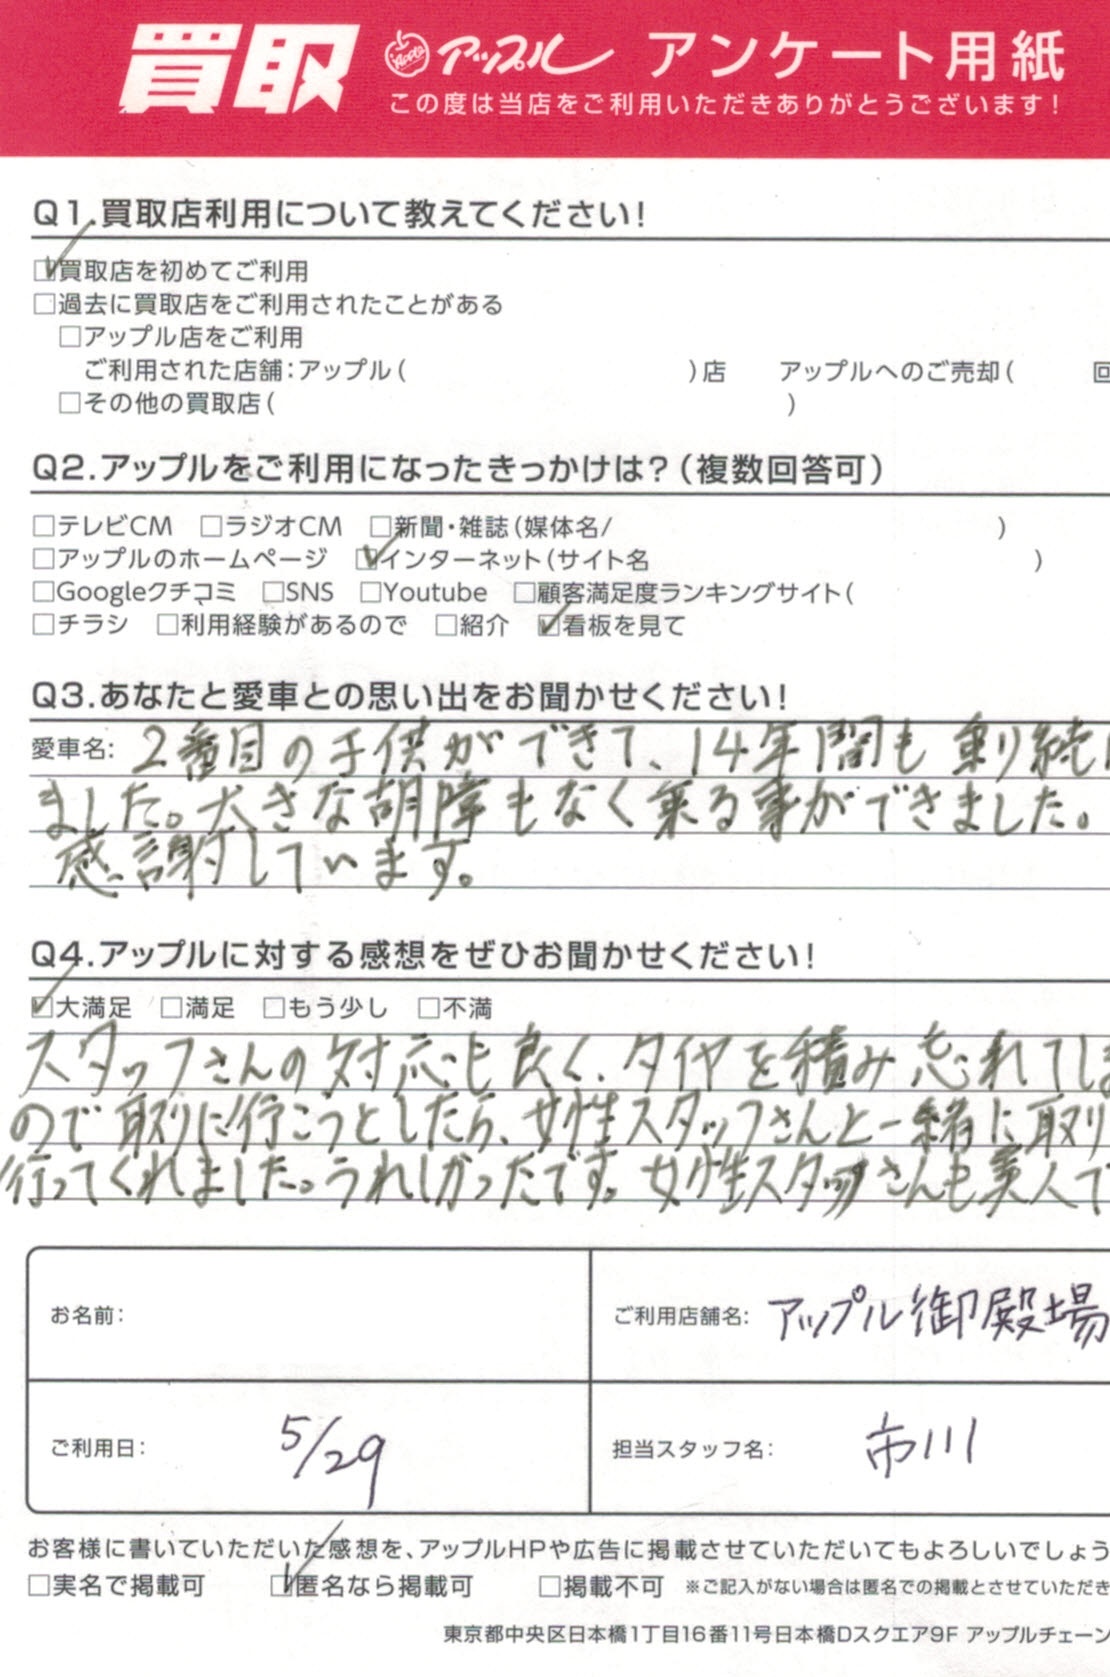 買取 アップル アンケート用紙
この度は当店をご利用いただきありがとうございます!
Q1.買取店利用について教えてください!
☑買取店を初めてご利用
□過去に買取店をご利用されたことがある
□アップル店をご利用
ご利用された店舗:アップル( )店 アップルへのご売却( 回
□その他の買取店( )
Q2.アップルをご利用になったきっかけは?(複数回答可)
□テレビCM □ラジオCM □新聞・雑誌(媒体名/ )
□アップルのホームページ ☑インターネット(サイト名 )
□Googleクチコミ □SNS □Youtube □顧客満足度ランキングサイト(
□チラシ □利用経験があるので □紹介 ☑看板を見て
Q3.あなたと愛車との思い出をお聞かせください!
愛車名: 2番目の子供ができて、14年間も乗り続け
ました。大きな胡障もなく乗る事ができました。
感謝しています。
Q4.アップルに対する感想をぜひお聞かせください!
☑大満足 □満足 □もう少し □不満
スタッフさんの対応も良く、タイヤを積み忘れてしま
ので取りに行こうとしたら、女性スタッフさんと一緒に取り
行ってくれました。うれしかったです。女性スタッフさんも美人で
お名前: ご利用店舗名: アップル御殿場
ご利用日: 5/29 担当スタッフ名: 市川
お客様に書いていただいた感想を、アップルHPや広告に掲載させていただいてもよろしいでしょう
□実名で掲載可 ☑匿名なら掲載可 □掲載不可 ※ご記入がない場合は匿名での掲載とさせていただき
東京都中央区日本橋1丁目16番11号日本橋Dスクエア9F アップルチェーン